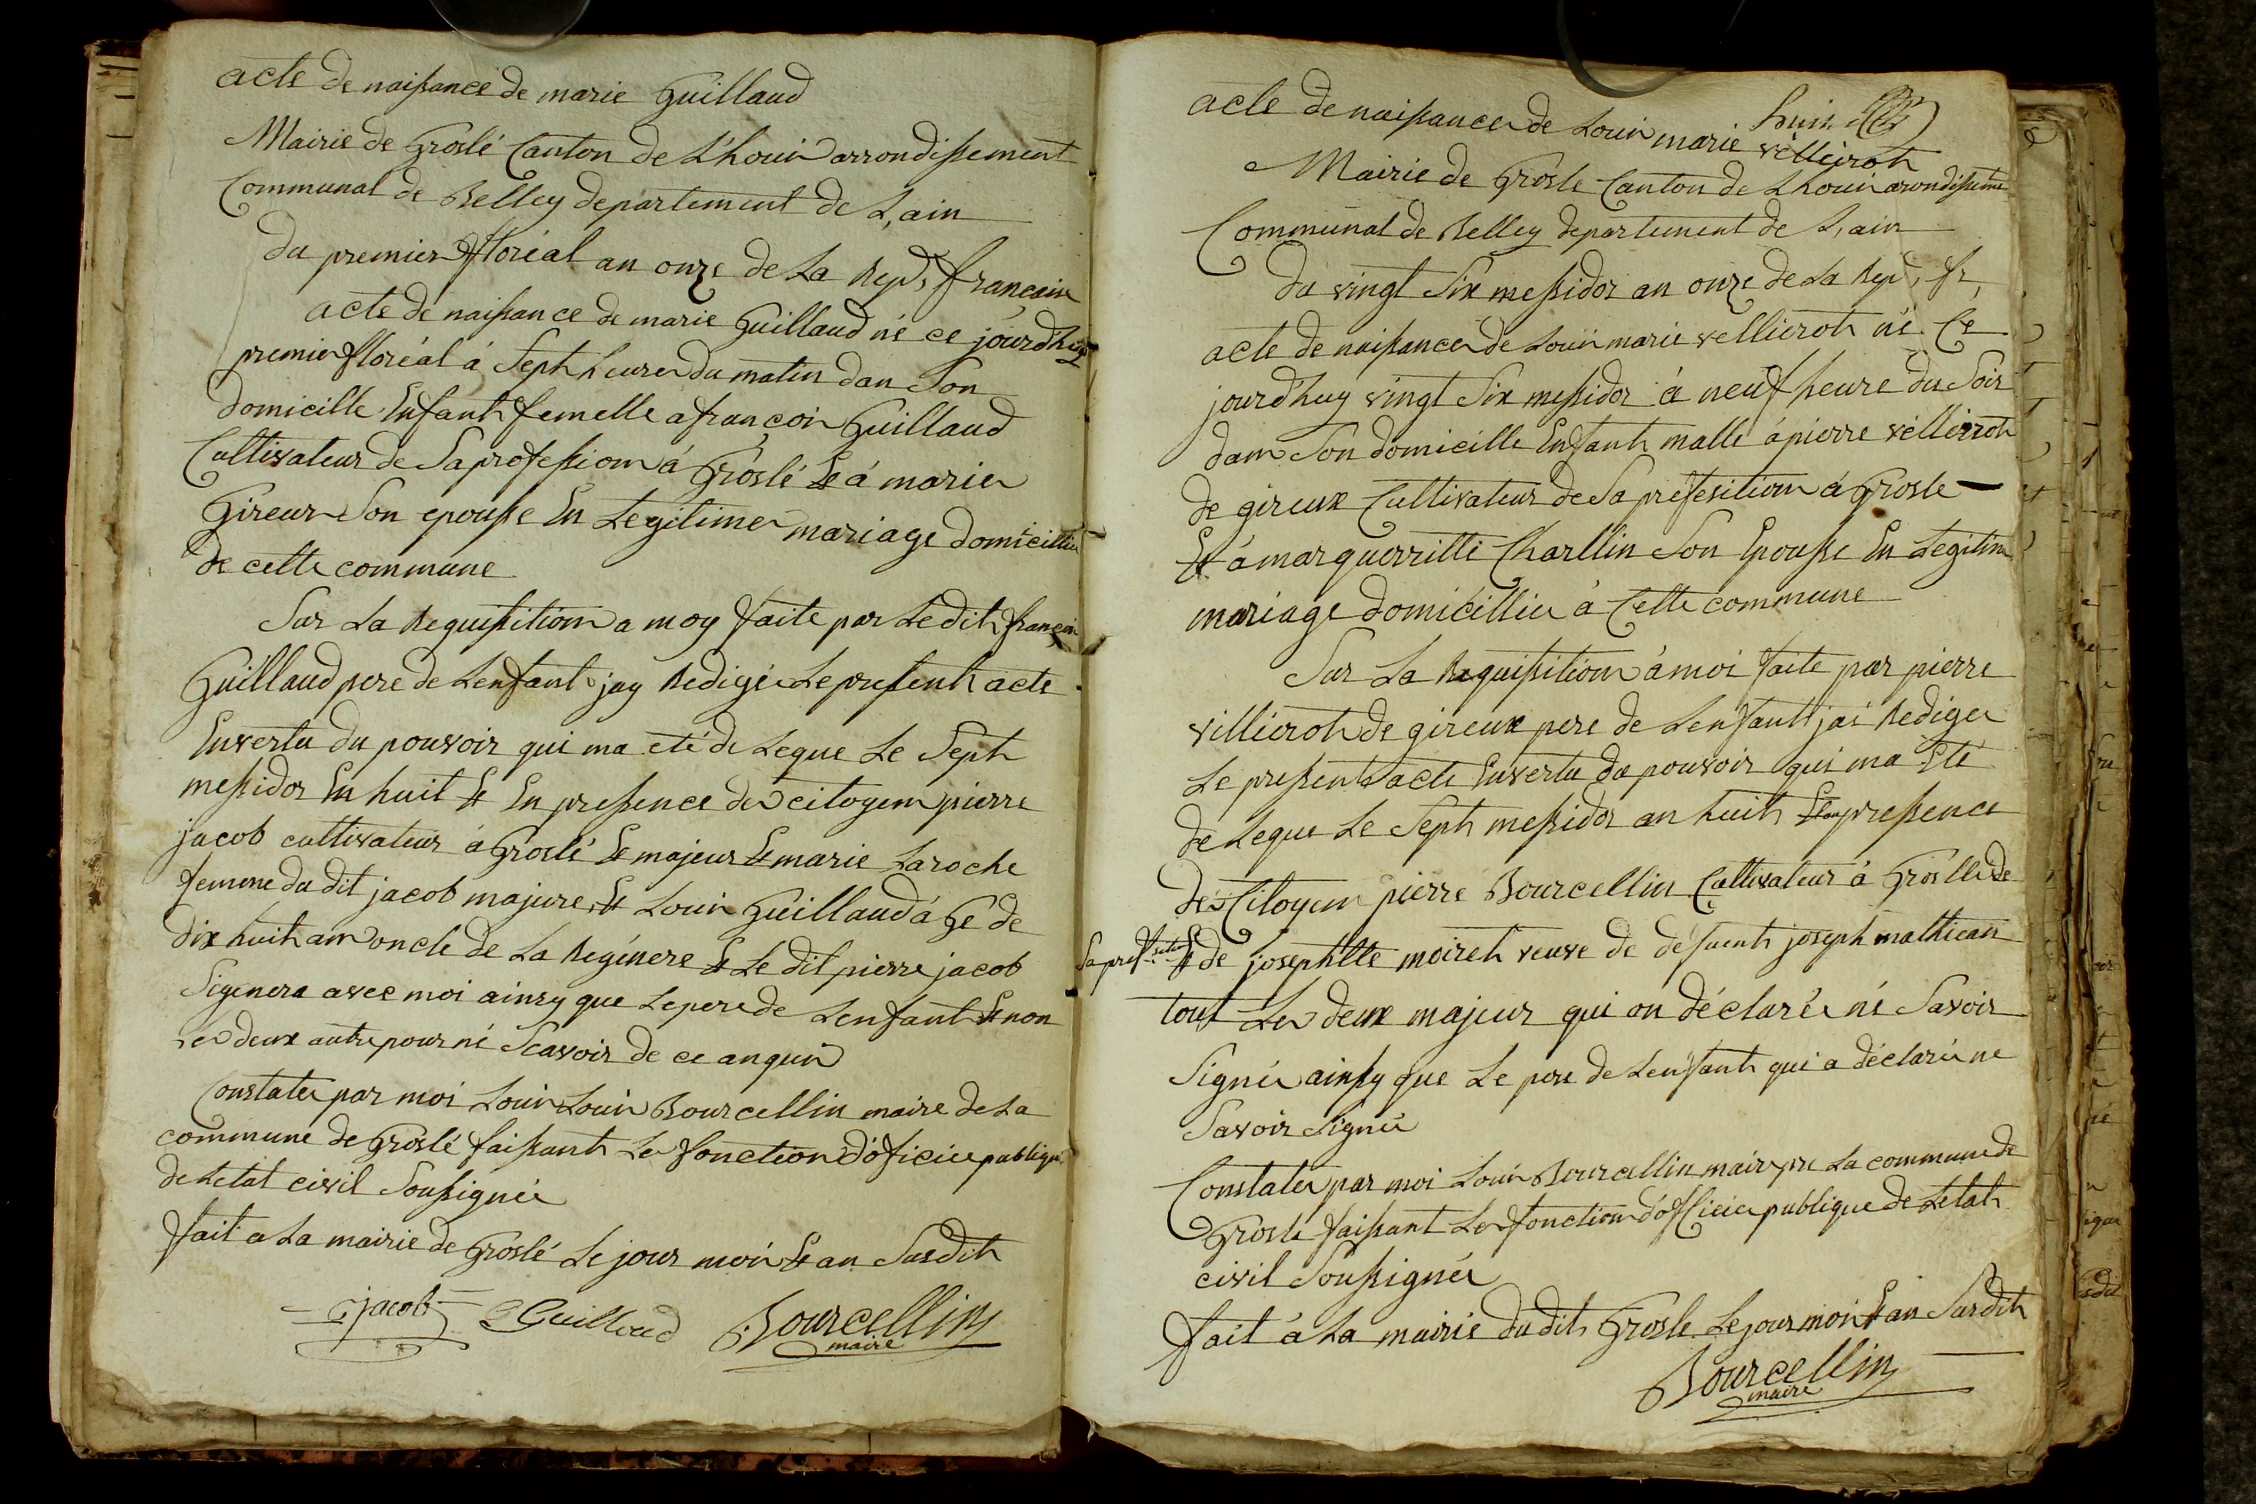 acte de naissance de marie Guillaud
Mairie de Groslé Canton de L'houis arrondissement
Communal de Belley departement de L,ain
du premier floréal an onze de La Rep, francaise
acte de naissance de marie Guillaud né ce jourd'huy
premier floréal á Sept heures du matin dans Son
domicille Enfant femelle a françois Guillaud
Cultivateur de Sa professiom á Groslé Et á marie
Gireur Son epousse En Legitime mariage domicillié
de cette commune
Sur La Requisitiom a moy faite par Ledit françois
Guillaud pere de Lenfant jay Redigée Le presenth acte
Envertu du pouvoir qui ma eté de Legue Le Septh
messidor En huit Et En pressence des citoyens pierre
jacob cultivateur á Groslé Et majeur Et marie Laroche
femme du dit jacob majure, Et Louis Guillaud áGé de
dix huith ans oncle de La Regénere Et Le dit pierre jacob
Sigenera avec moi ainsy que Le pere de Lenfant Et non
Les deux autre pour né Scavoir de ce anquis
Constater par moi Louis Louis Bourcellin maire de La
commune de Groslé faissant Les fonction d'oficier publique
de Letat civil Soussignée
fait a La mairie de Groslé Le jour mois Et an Susdith
jacob Guilloud Bourcellin
maire
acte de naissance de Louis marie
vellieroth
Mairie de Grosle Canton de Lhouis arondisseme
Communal de Belley departement de L,ain
du vingt Six messidor an onze de La Rep, fr,
acte de naissance de Louis marie vellieroth né Ce
jourd'huy vingt Six messidor á neuf heure du Soir
dans Son domicille Enfanth malle á pierre vellieroth
de gireux Cultivateur de Sa préfesitiom á Grosle
Et á marguerritte Charllin Son Epousse En Legitim
mariage domicilliée á Cette commune
Sur La Requisitiom á moi faite par pierre
villieroth de gireux pere de Lenfanth jai Rediger
Le pressenth acte Envertu du pouvoir qui ma Eté
de Legue Le Septh messidor an huith Et en pressence
des Citoyens pierre Bourcellin Cultivateur á Groslle de
Sa prof
Et de josephtte moireth veuve de défuenth joseph mathieau
tout Les deux majeur qui on déclarée né Savoir
Signée ainsy que Le pere de Lenfanth qui a déclarée ne
Savoir Signée
Constater par moi Louis Bourcellin maire pre La commune de
Grosle faissant Les fonctiom d'officier publique de Letath
civil Soussignée
fait á La mairie du dit Grosle Le jour mois Et an Susdith
Bourcellin
maire